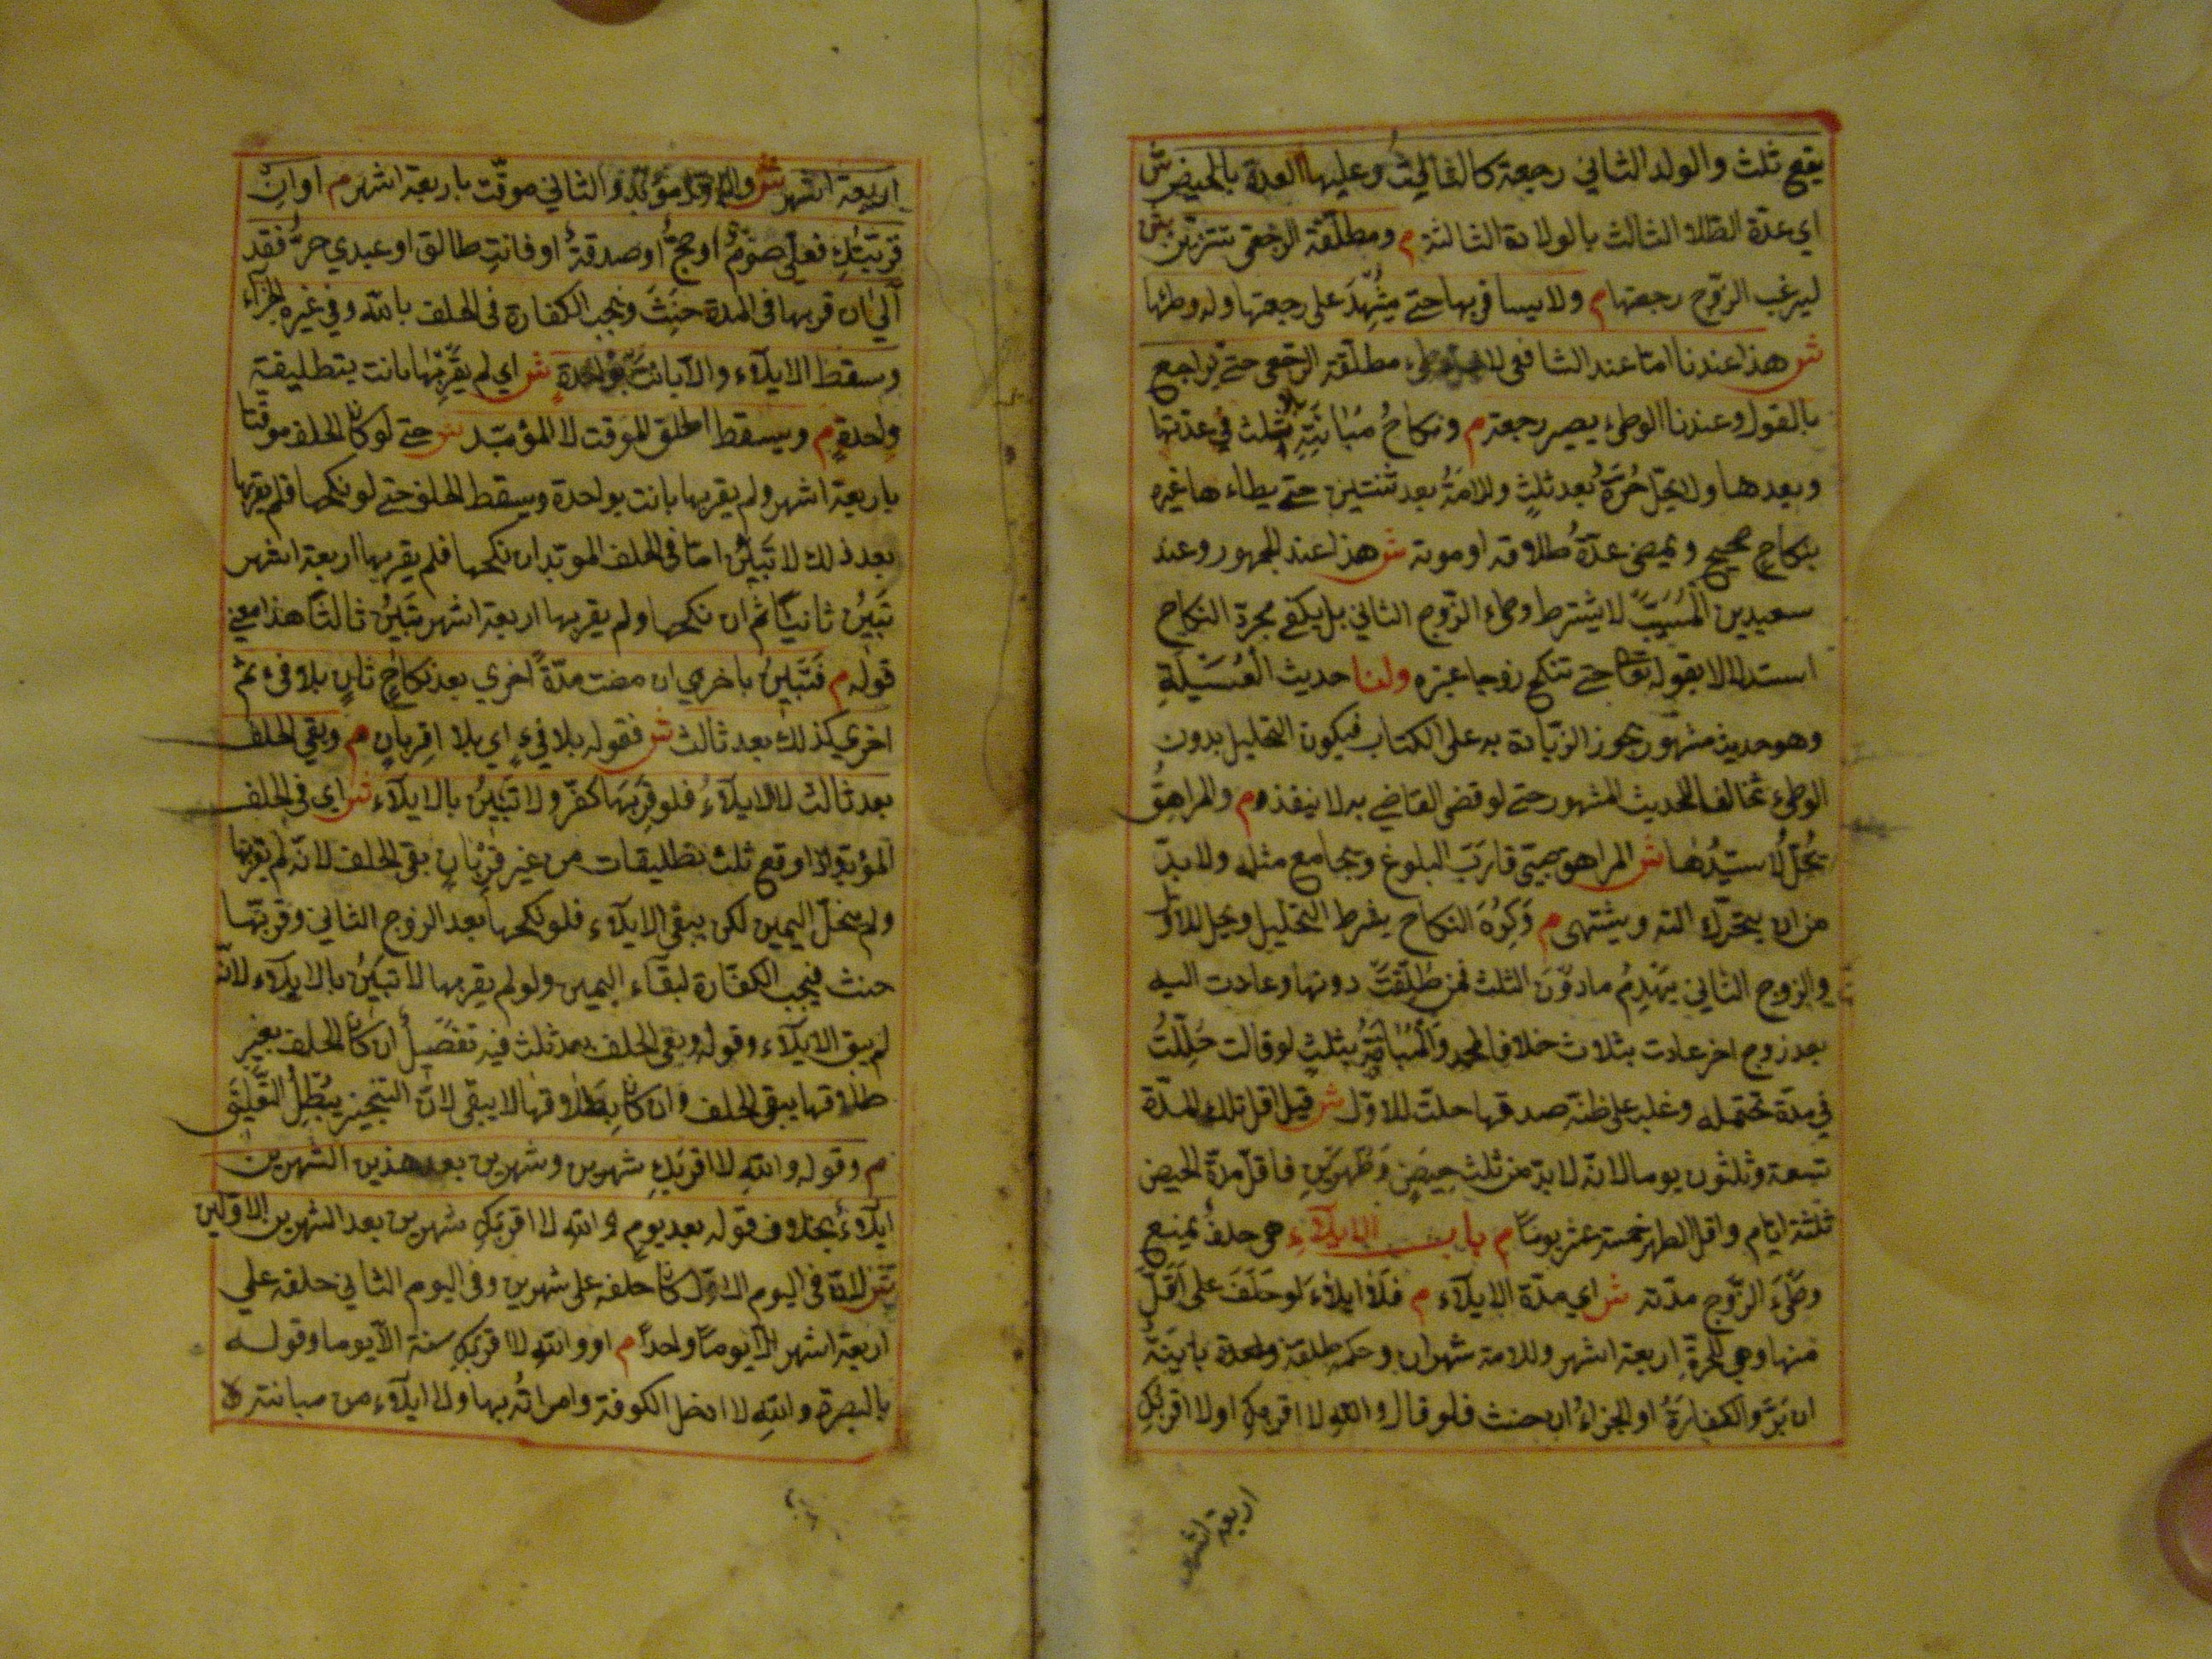 يقع ثلث والولد الثاني رجعة كالثالث وعليها العدة بالحيض ش
اي عدة الطلاق الثالث بالولادة الثالثة م ومطلقة الرجعى تتزين ش
ليرغب الزوج رجعتها م ولا يسافر بها حتى يشهد على رجعتها وله وطئها
ش هذا عندنا اما عند الشافعى لا وطىء مطلقة الرجعى حتى يراجع
بالقول وعندنا الوطىء يصير رجعة م ونكاح مبانته بلا ثلث في عدتها
وبعدها ولا يحل حرة بعد ثلث ولا امة بعد ثنتين حتى يطاءها غيره
بنكاح صحيح ويمضى عدة طلاقه او موته ش هذا عند الجمهور وعند
سعيد بن المسيب لا يشترط وطىء الزوج الثاني بل يكفى مجرة النكاح
استدلالا بقوله تعا حتى تنكح زوجا غيره ولنا حديث العسيلة
وهو حديث مشهور يجوز الزيادة به على الكتاب فيكون التحليل بدون
الوطىء مخالفا للحديث المشهور حتى لو قضى القاضى به لا ينفذ م والمراهق
يحل لا سيدها ش المراهق صبى قارب البلوغ ويجامع مثله ولا بد
من ان يتحرك الته ويشتهى م وكره النكاح بشرط التحليل ويحل للاول
والزوج الثاني يهدم ما دون الثلث فمن طلقت دونها وعادت اليه
بعد زوج اخر عادت بثلاث خلافا لمحمد والمبانة بثلث لو قالت حللت
في مدة تحتمله وغلب على ظنه صدقها حلت للاول ش قيل اقل تلك المدة
تسعة وثلثون يوما لانه لا بد من ثلث حيض وطهرين فاقل مدة الحيض
ثلثة ايام واقل الطهر خمسة عشر يوما م باب الايلاء هو حلف يمنع
وطىء الزوج مدته ش اي مدة الايلاء م فلا ايلاء لو حلف على اقل
منها وهي للحرة اربعة اشهر وللامة شهران وحكمه طلقة واحدة باينة
ان بر والكفارة او الجزاء ان حنث فلو قال والله لا اقربك او لا اقربك
اربعة اشهر
اربعة اشهر ش والاول مؤبد والثاني موقت باربعة اشهر م او ان
قربتك فعلي صوم او حج او صدقة او فانت طالق او عبدي حر فقد
آلى ان قربها فى المدة حنث ويجب الكفارة فى الحلف بالله وفي غيره الجزاء
وسقط الايلاء والا بانت بواحدة ش اي لم يقربها بانت بتطليقة
واحدة م ويسقط الحلق الموقت لا المؤبد ش حتى لو كان الحلف موقتا
باربعة اشهر ولم يقربها بانت بواحدة وسقط الحلف حتى لو نكحها فلم يقربها
بعد ذلك لا تبين اما فى الحلف الموبد ان نكحها فلم يقربها اربعة اشهر
تبين ثانيا ثم ان نكحها ولم يقربها اربعة اشهر تبين ثالثا هذا معنى
قوله م فتبين باخري ان مضت مدة اخري بعد نكاح ثان بلا فىء ثم
اخري كذلك بعد ثالث ش فقوله بلا فيء اي بلا قربان م وبقي الحلف
بعد ثالث لا الايلاء فلو قربها كفر ولا تبين بالايلاء ش اي فى الحلف
المؤبد لو اوقع ثلث تطليقات من غير قربان بقى الحلف لانه لم يقربها
ولم ينحل اليمين لكن يبقى الايلاء فلو نكحها بعد الزوج الثاني وقربها
حنث فيجب الكفارة لبقاء اليمين ولو لم يقربها لا تبين بالايلاء لانه
لم يبق الايلاء وقوله وبقى الحلف بعد ثلث فيه تفصيل ان كان الحلف بغير
طلاقها يبقى الحلف وان كان بطلاقها لا يبقى لان التنجيز يبطل التعليق
م وقوله والله لا اقربك شهرين وشهرين بعد هذين الشهرين
ايلاء بخلاف قوله بعد يوم والله لا اقربك شهرين بعد الشهرين الاولين
ش لانه فى اليوم الاول كان حلفه على شهرين وفى اليوم الثاني حلفه على
اربعة اشهر الا يوما واحدا م او والله لا اقربك سنة الا يوما وقوله
بالبصرة والله لا ادخل الكوفة وامراته بها ولا ايلاء من مبانته